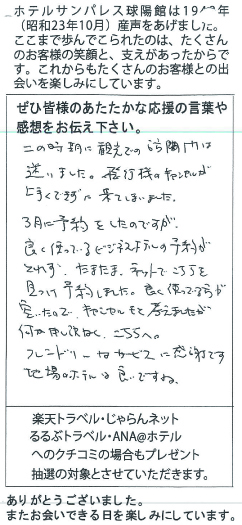 ホテルサンパレス球陽館は19 年
(昭和23年10月)産声をあげました。
ここまで歩んでこられたのは、たくさん
のお客様の笑顔と、支えがあったからで
す。これからもたくさんのお客様との出
会いを楽しみにしています。
ぜひ皆様のあたたかな応援の言葉や
感想をお伝え下さい。
この時期に観光での訪問は
迷いました。飛行機のキャンセルが
上手くできずに来てしまいました。
3月に予約をしたのですが、
良く使っているビジネスホテルの予約が
とれず、たまたまネットでこちらを
見つけ予約しました。良く使ってる方が
空いたので、キャンセルもと考えましたが
何か申し訳なく、こちらへ。
フレンドリーなサービスに感謝です
地場のホテルは良いですね。
楽天トラベル・じゃらんネット
るるぶトラベル・ANA@ホテル
へのクチコミの場合もプレゼント
抽選の対象とさせていただきます。
ありがとうございました。
またお会いできる日を楽しみにしています。